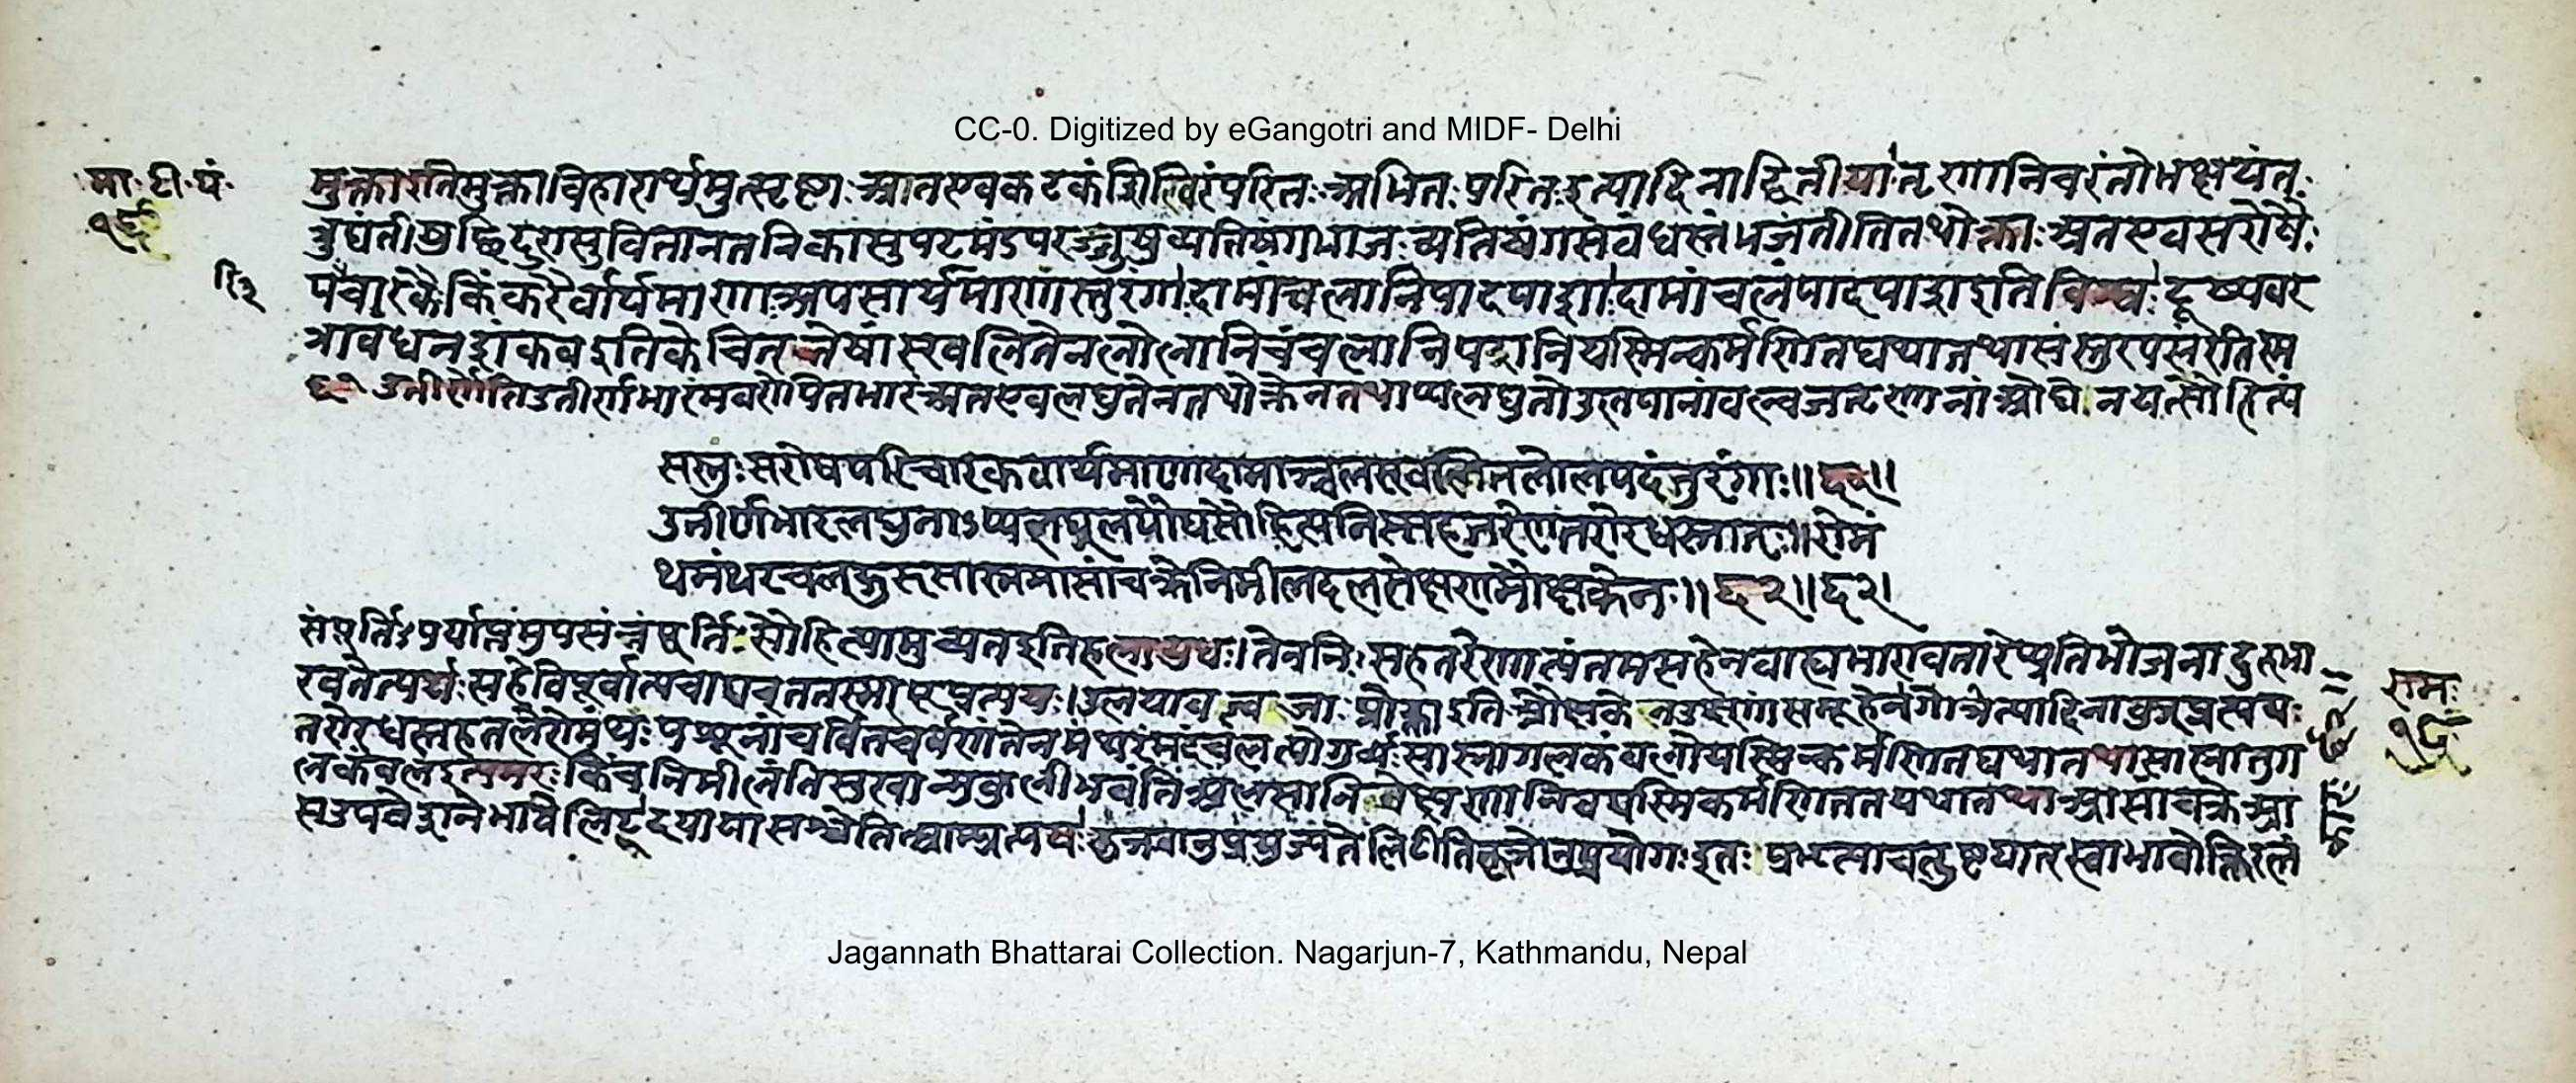 CC-0. Digitized by eGangotri and MIDF- Delhi
मा. टी. पं.
१९
मुक्तारतिमुक्ता विहारार्थमुत्सृष्टाः अतएव कटकं शिविरं परितः अभितः परितः इत्यादिना द्वितीया तृणानि चरंतो भक्षयंतः
त्रुघंती सुवितानतनिकासु पटमंडपरज्जुषु व्यतिषंगभाजः व्यतिषंगसंबंधस्तं भजंतीति तथोक्ताः अतएव सरोषैः
रि २
पचारकै किंकरैर्वार्यमाणा अपसार्यमाणास्तुरंगाः दामांचलानि पादपाशाः दामांचलं पादपाश इति विश्वः दूष्यवर
त्रावधनशंकव इति केचित् तेषां स्खलितेन लोलानि चंचलानि पदानि यस्मिन्कर्मणि तद्यथा तथा सस्तुरपसरंतिस्म
उत्तीर्णेति उत्तीर्णभारंमवरोपितभारं अतएव लघुतेन तथोक्तेन तथाप्यलघुनो उलपानां वल्वजतृणानां ओघेन यत्सौहित्यं
सस्तुः सरोषपरिचारकवार्यमाणा दामाञ्चलस्खलितलोलपदं तुरंगाः ॥ ६१ ॥
उत्तीर्णभारलघुनाऽप्यलघूलपौघसौहित्यनिस्सहतरेण तरोरधस्तात् ॥ रोमं
थमंथरचलद्गुरुसास्नमासांचक्रे निमीलदलसेक्षणमौक्षकेन ॥ ६२ ॥ ६२ ।
संपूर्तिः पर्याप्तमुपसंन्नं पूर्तिः सौहित्यामुच्यत इति हलायुधः । तेन निःसहतरेणात्यंतमसहेन वाह्यभारावतारेप्यतिभोजनादुत्तमा
राम
१९
रवतेत्यर्थः सहेर्विपूर्वात्पचा उलपा वल्वजाः प्रोक्ता इति औक्षकेन उक्ष्णां समूहेन गोत्रेत्यादिना वुञ्प्रत्ययः
तरोरधस्तात्तले रोमंथः पशूनां चर्वितचर्वणं तेन मंथरं मंदं चल गुर्व्यः सास्ना गलकंवलो यस्मिन्कर्मणि तद्यथा तथा सास्ना तु ग
लकंवल इत्यमरः किंच निमीलंति सुखान्मुकुलीभवंति अलसानि ईक्षणानि च यस्मिकर्मणि तत् यथा तथा आसांचक्रे आ
स उपवेशने भावे लिट् दयायासश्चेति त्याम्प्रत्ययः कृञ्चानुप्रयुज्यते लिटीति कृञोनुप्रयोगः इतः प्रभृत्याचतुष्टयात् स्वाभावोक्तिरलं
Jagannath Bhattarai Collection. Nagarjun-7, Kathmandu, Nepal